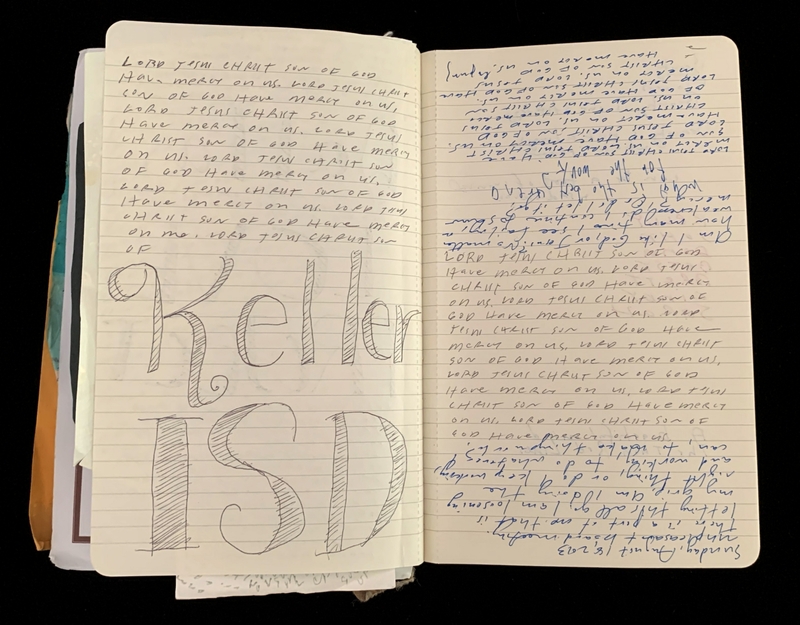 LORD JESUS CHRIST SON OF GOD
HAVE MERCY ON US. LORD JESUS CHRIST
SON OF GOD HAVE MERCY ON US.
LORD JESUS CHRIST SON OF GOD
HAVE MERCY ON US. LORD JESUS
CHRIST SON OF GOD HAVE MERCY
ON US. LORD JESUS CHRIST SON
OF GOD HAVE MERCY ON US.
LORD JESUS CHRIST SON OF GOD
HAVE MERCY ON US. LORD JESUS
CHRIST SON OF GOD HAVE MERCY
ON ME. LORD JESUS CHRIST SON
OF
Keller
ISD
LORD JESUS CHRIST SON OF GOD
HAVE MERCY ON US. LORD JESUS
CHRIST SON OF GOD HAVE MERCY
ON US. LORD JESUS CHRIST SON OF
GOD HAVE MERCY ON US. LORD
JESUS CHRIST SON OF GOD HAVE
MERCY ON US. LORD JESUS CHRIST
SON OF GOD HAVE MERCY ON US.
LORD JESUS CHRIST SON OF GOD
HAVE MERCY ON US. LORD JESUS
CHRIST SON OF GOD HAVE MERCY
ON US. LORD JESUS CHRIST SON OF
GOD HAVE MERCY ON US.
Sunday, August 18, 2013
unpleasant board meeting.
There is a part of me that is
letting this all go. I am loosening
my grip. Am I doing the
right thing, or do I keep working
and working to do whatever I
can, to make things
Am I like God, or No matter
how many times I see failing or
do I continue to show
mercy? Or, do I let it go?
What is the best
for the work?
LORD JESUS CHRIST SON OF GOD HAVE
MERCY ON US. LORD JESUS CHRIST
SON OF GOD HAVE MERCY ON US.
LORD JESUS CHRIST SON OF GOD
HAVE MERCY ON US. LORD JESUS
CHRIST SON OF GOD HAVE MERCY
ON US. LORD JESUS CHRIST SON
OF GOD HAVE MERCY ON US.
LORD JESUS CHRIST SON OF GOD HAVE
MERCY ON US. LORD JESUS
CHRIST SON OF GOD
HAVE MERCY ON US.